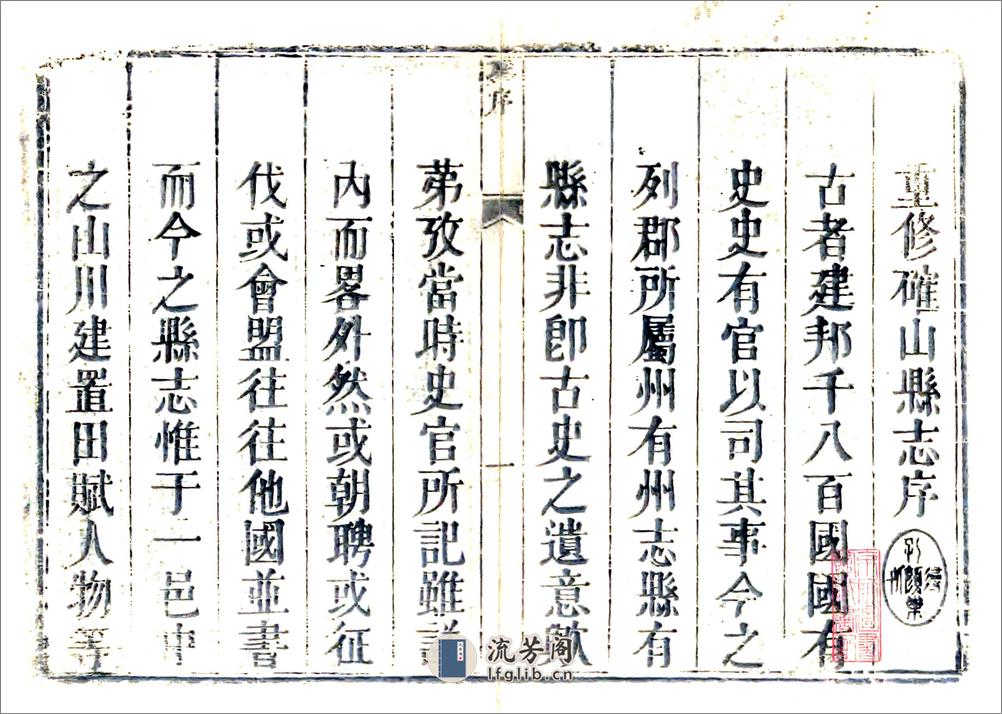 重修確山縣志序
古者建邦千八百國國有
史史有官以司其事今之
列郡所屬州有州志縣有
縣志非卽古史之遺意歟
苐攷當時史官所記雖詳
內而畧外然或朝聘或征
伐或會盟往往他國並書
而今之縣志惟于一邑中
之山川建置田賦人物等
序
一
流芳阁
lfglib.cn